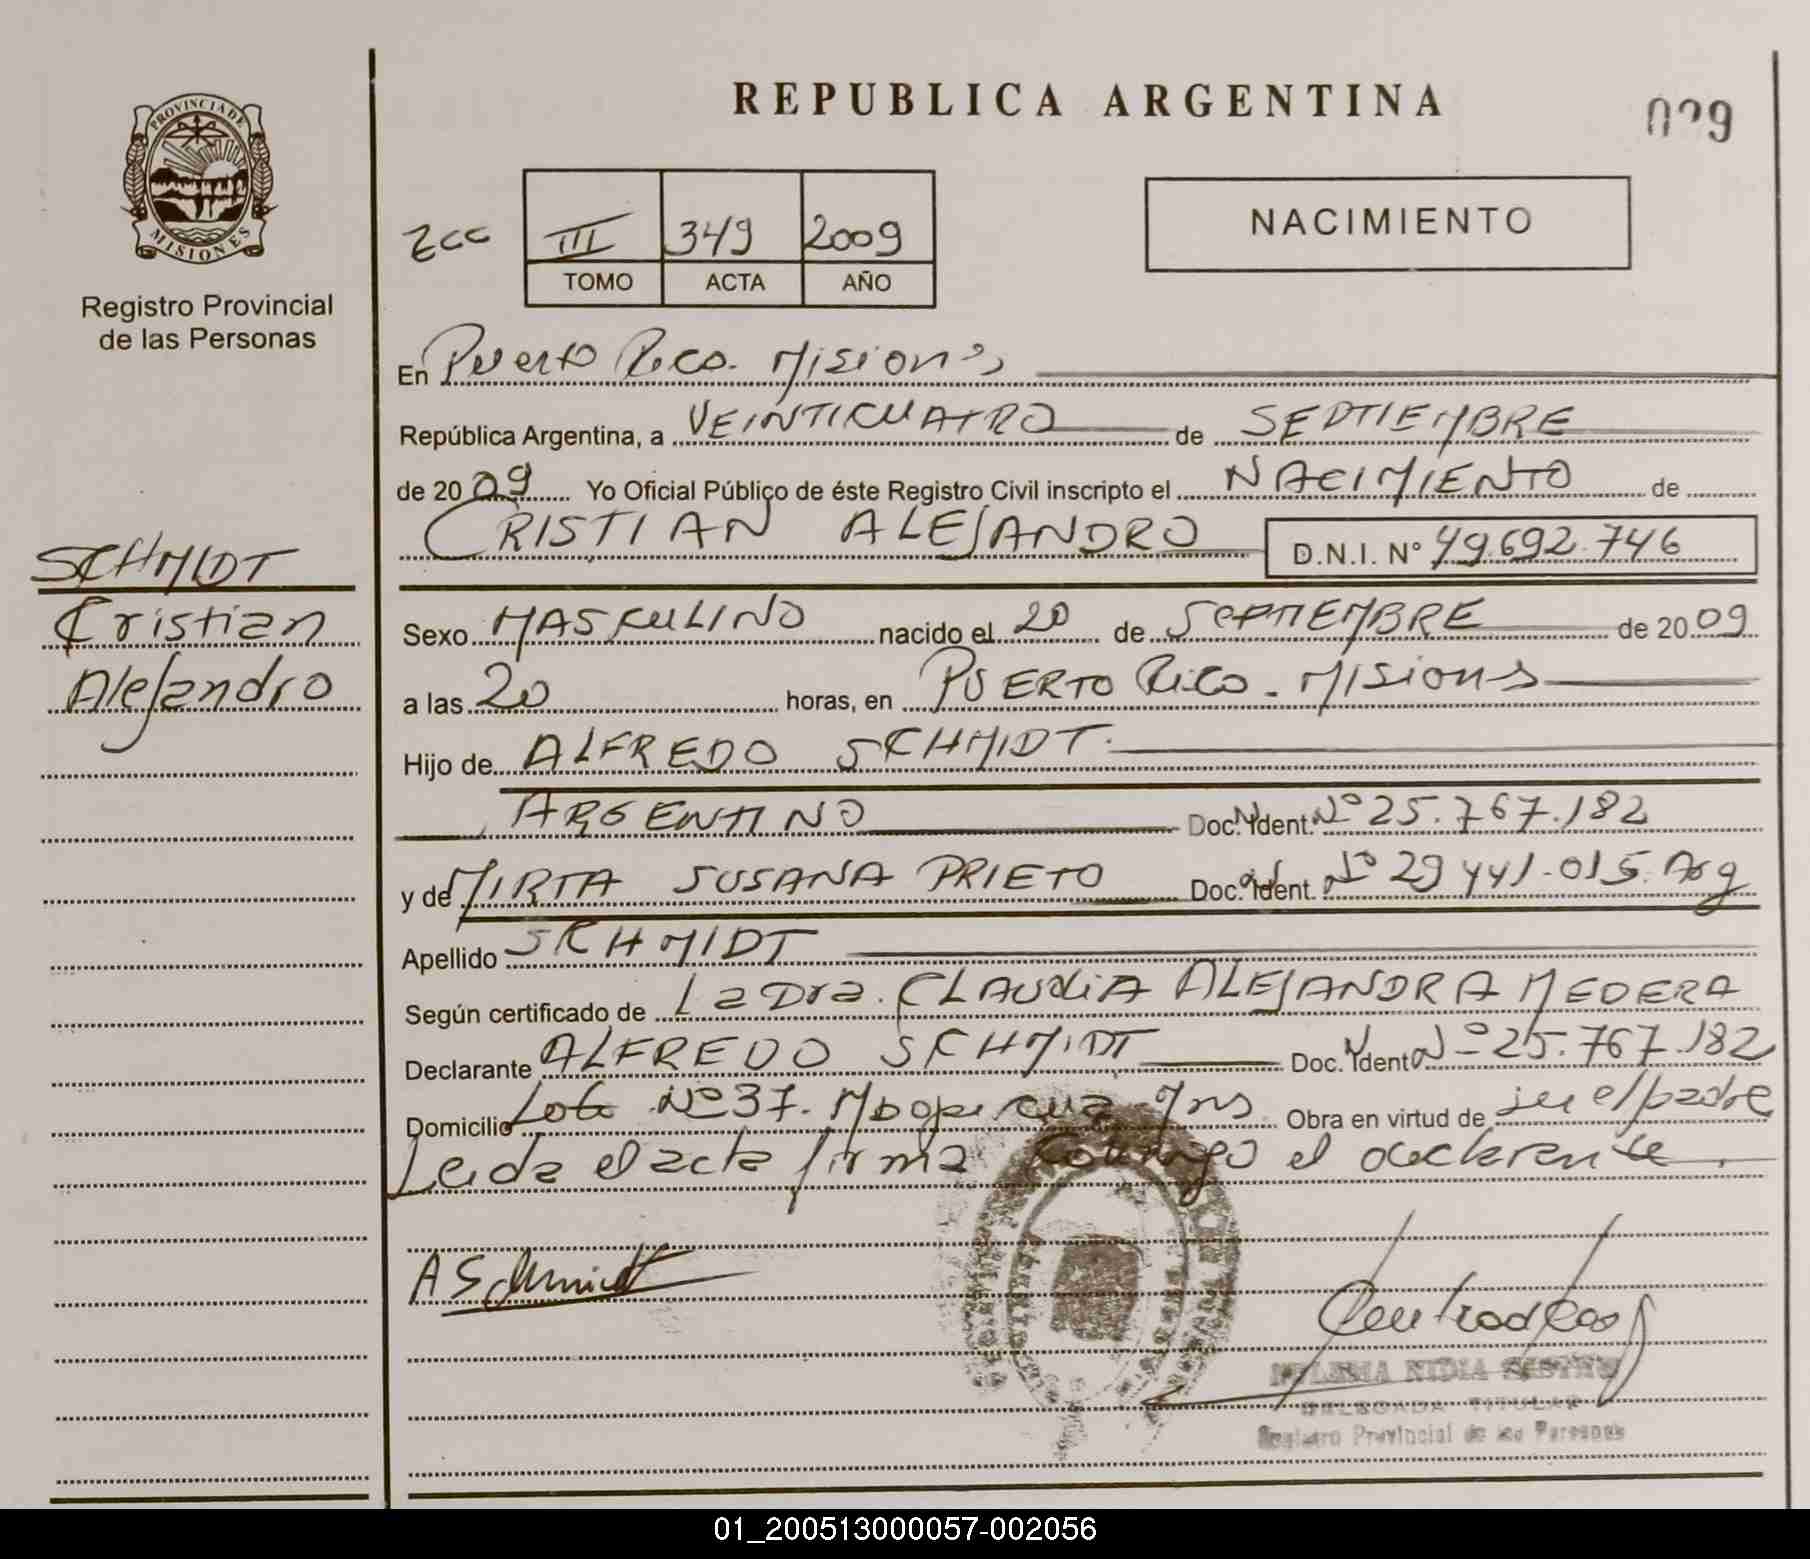 REPUBLICA ARGENTINA
029
PROVINCIA DE
MISIONES
Registro Provincial
de las Personas
III 349 2009
TOMO ACTA AÑO
NACIMIENTO
En Puerto Rico. Misiones
República Argentina, a VEINTICUATRO de SEPTIEMBRE
de 2009 Yo Oficial Público de éste Registro Civil inscripto el NACIMIENTO de
CRISTIAN ALEJANDRO D.N.I. N° 49.692.746
SCHMIDT
Cristian
Alejandro
Sexo MASCULINO nacido el 20 de SEPTIEMBRE de 2009
a las 20 horas, en PUERTO Rico. Misiones
Hijo de ALFREDO SCHMIDT.
ARGENTINO Doc. Ident. N° 25.767.182
y de MIRTA SUSANA PRIETO Doc. Ident. N° 29.441.015. Arg
Apellido SCHMIDT
Según certificado de La Dra. CLAUDIA ALEJANDRA MEDERA
Declarante ALFREDO SCHMIDT Doc. Ident N° 25.767.182
Domicilio Lote N° 37. Mns Obra en virtud de ser el padre
Leida el acta firma conmigo el declarante.
A Schmidt
NIDIA
DELEGADA TITULAR
Registro Provincial de las Personas
01_200513000057-002056